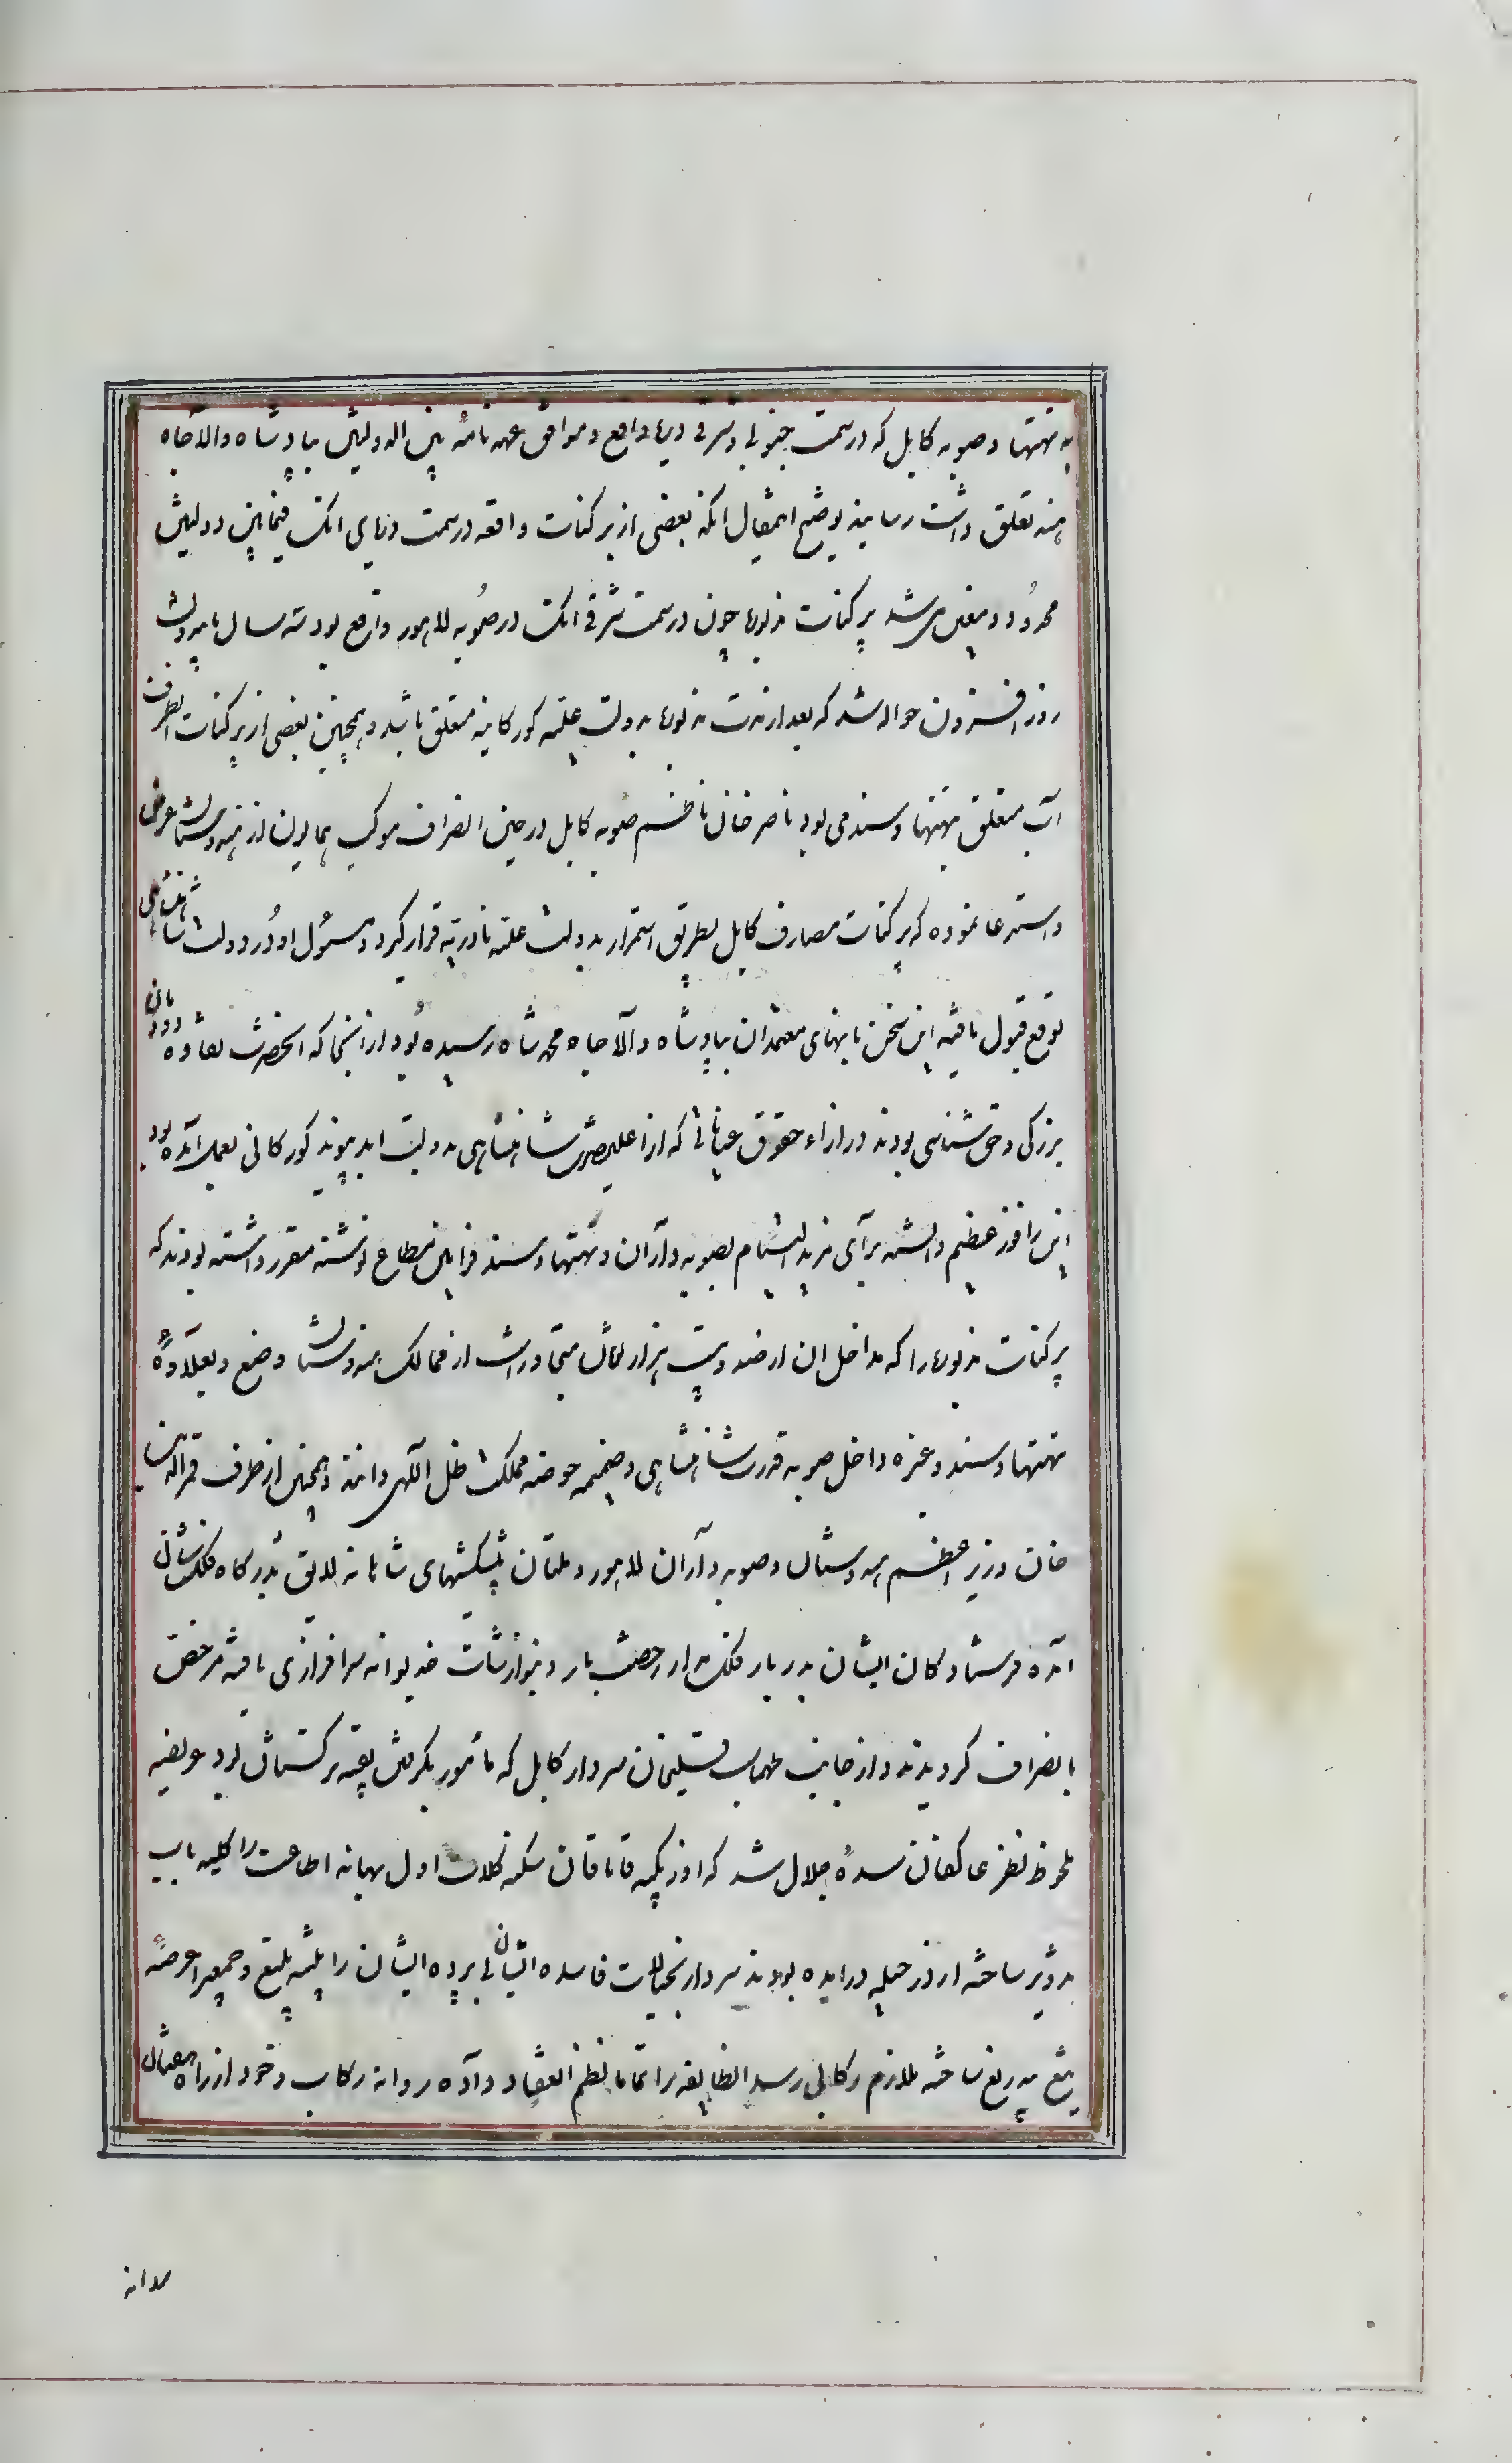 به تهتها و صوبه کابل که در سمت جنوبی و شرقی دریا واقع و موافق عهد نامه بین الدولتین بپادشاه والاجاه
هند تعلق داشت رسانید توضیح اینمقال آنکه بعضی از پرکنات واقعه در سمت دریای اتک فیمابین دولتین
محدود و معین می شد پرکنات مذبوره چون در سمت شرقی اتک در صوبه لاهور واقع بود سه سال باین دولت
روز افزون حواله شد که بعد از مدت مذبوره بدولت علیه کورکانیه متعلق باشد و همچنین بعضی از پرکنات انطرف
آب متعلق بتهتها و سند می بود ناصر خان ناظم صوبه کابل در حین انصراف موکب همایون از هندوستان عرض
و استدعا نموده که پرکنات مصارف کابل بطریق استمرار بدولت علیه نادریه قرار گیرد و مسئول او در دولت شاهنشاهی
توقع قبول یافته این سخن بانهای معتمدان بپادشاه والاجاه محمد شاه رسیده بود از انجا که انحضرت نقاوه دودمان
بزرکی و حق شناسی بودند در ازاء حقوق عنایاتی که از اعلیحضرت شاهنشاهی بدولت ابد پیوند کورکانی بعمل آمده بود
این را فوز عظیم دانسته برای مزید التیام بصوبه داران و تهتها و سند فرامین مطاع نوشته مقرر داشته بودند که
پرکنات مذبوره را که مداخل ان از صد و بیست هزار تومان متجاوز است از ممالک هندوستان وضع و بعلاوه
تهتها و سند و غیره داخل صوبه قدرت شاهنشاهی و ضمیمه حوضه مملکت ظل اللهی دانند و همچنین از طرف قمرالدین
خان وزیر اعظم هندوستان و صوبه داران لاهور و ملتان پیشکشهای شاهانه لایق بدرکاه فلک نشان
آمده فرستادکان ایشان بدربار فلک مدار رخصت بار و بنوازشات خدیوانه سرافرازی یافته مرخص
بانصراف کردیدند و از جانب طهماسب قلیخان سردار کابل که مامور بکرفتن بقیه ترکستان بود عریضه
ملحوظ نظر عاکفان سده جلال شد که اوزبکیه قاناقان سکنه کلات اول بهانه اطاعت را کلید باب
تدویر ساخته از در حیله درامده بودند سردار بخیالات فاسده ایشان پی برده ایشان را تنبیه بلیغ و جمعیرا عرضه
تیغ بیدریغ ساخته ملازم رکابی رسد انطایفه را تماما نظم انعقاد داده روانه رکاب و خود از راه میمنال
روانه